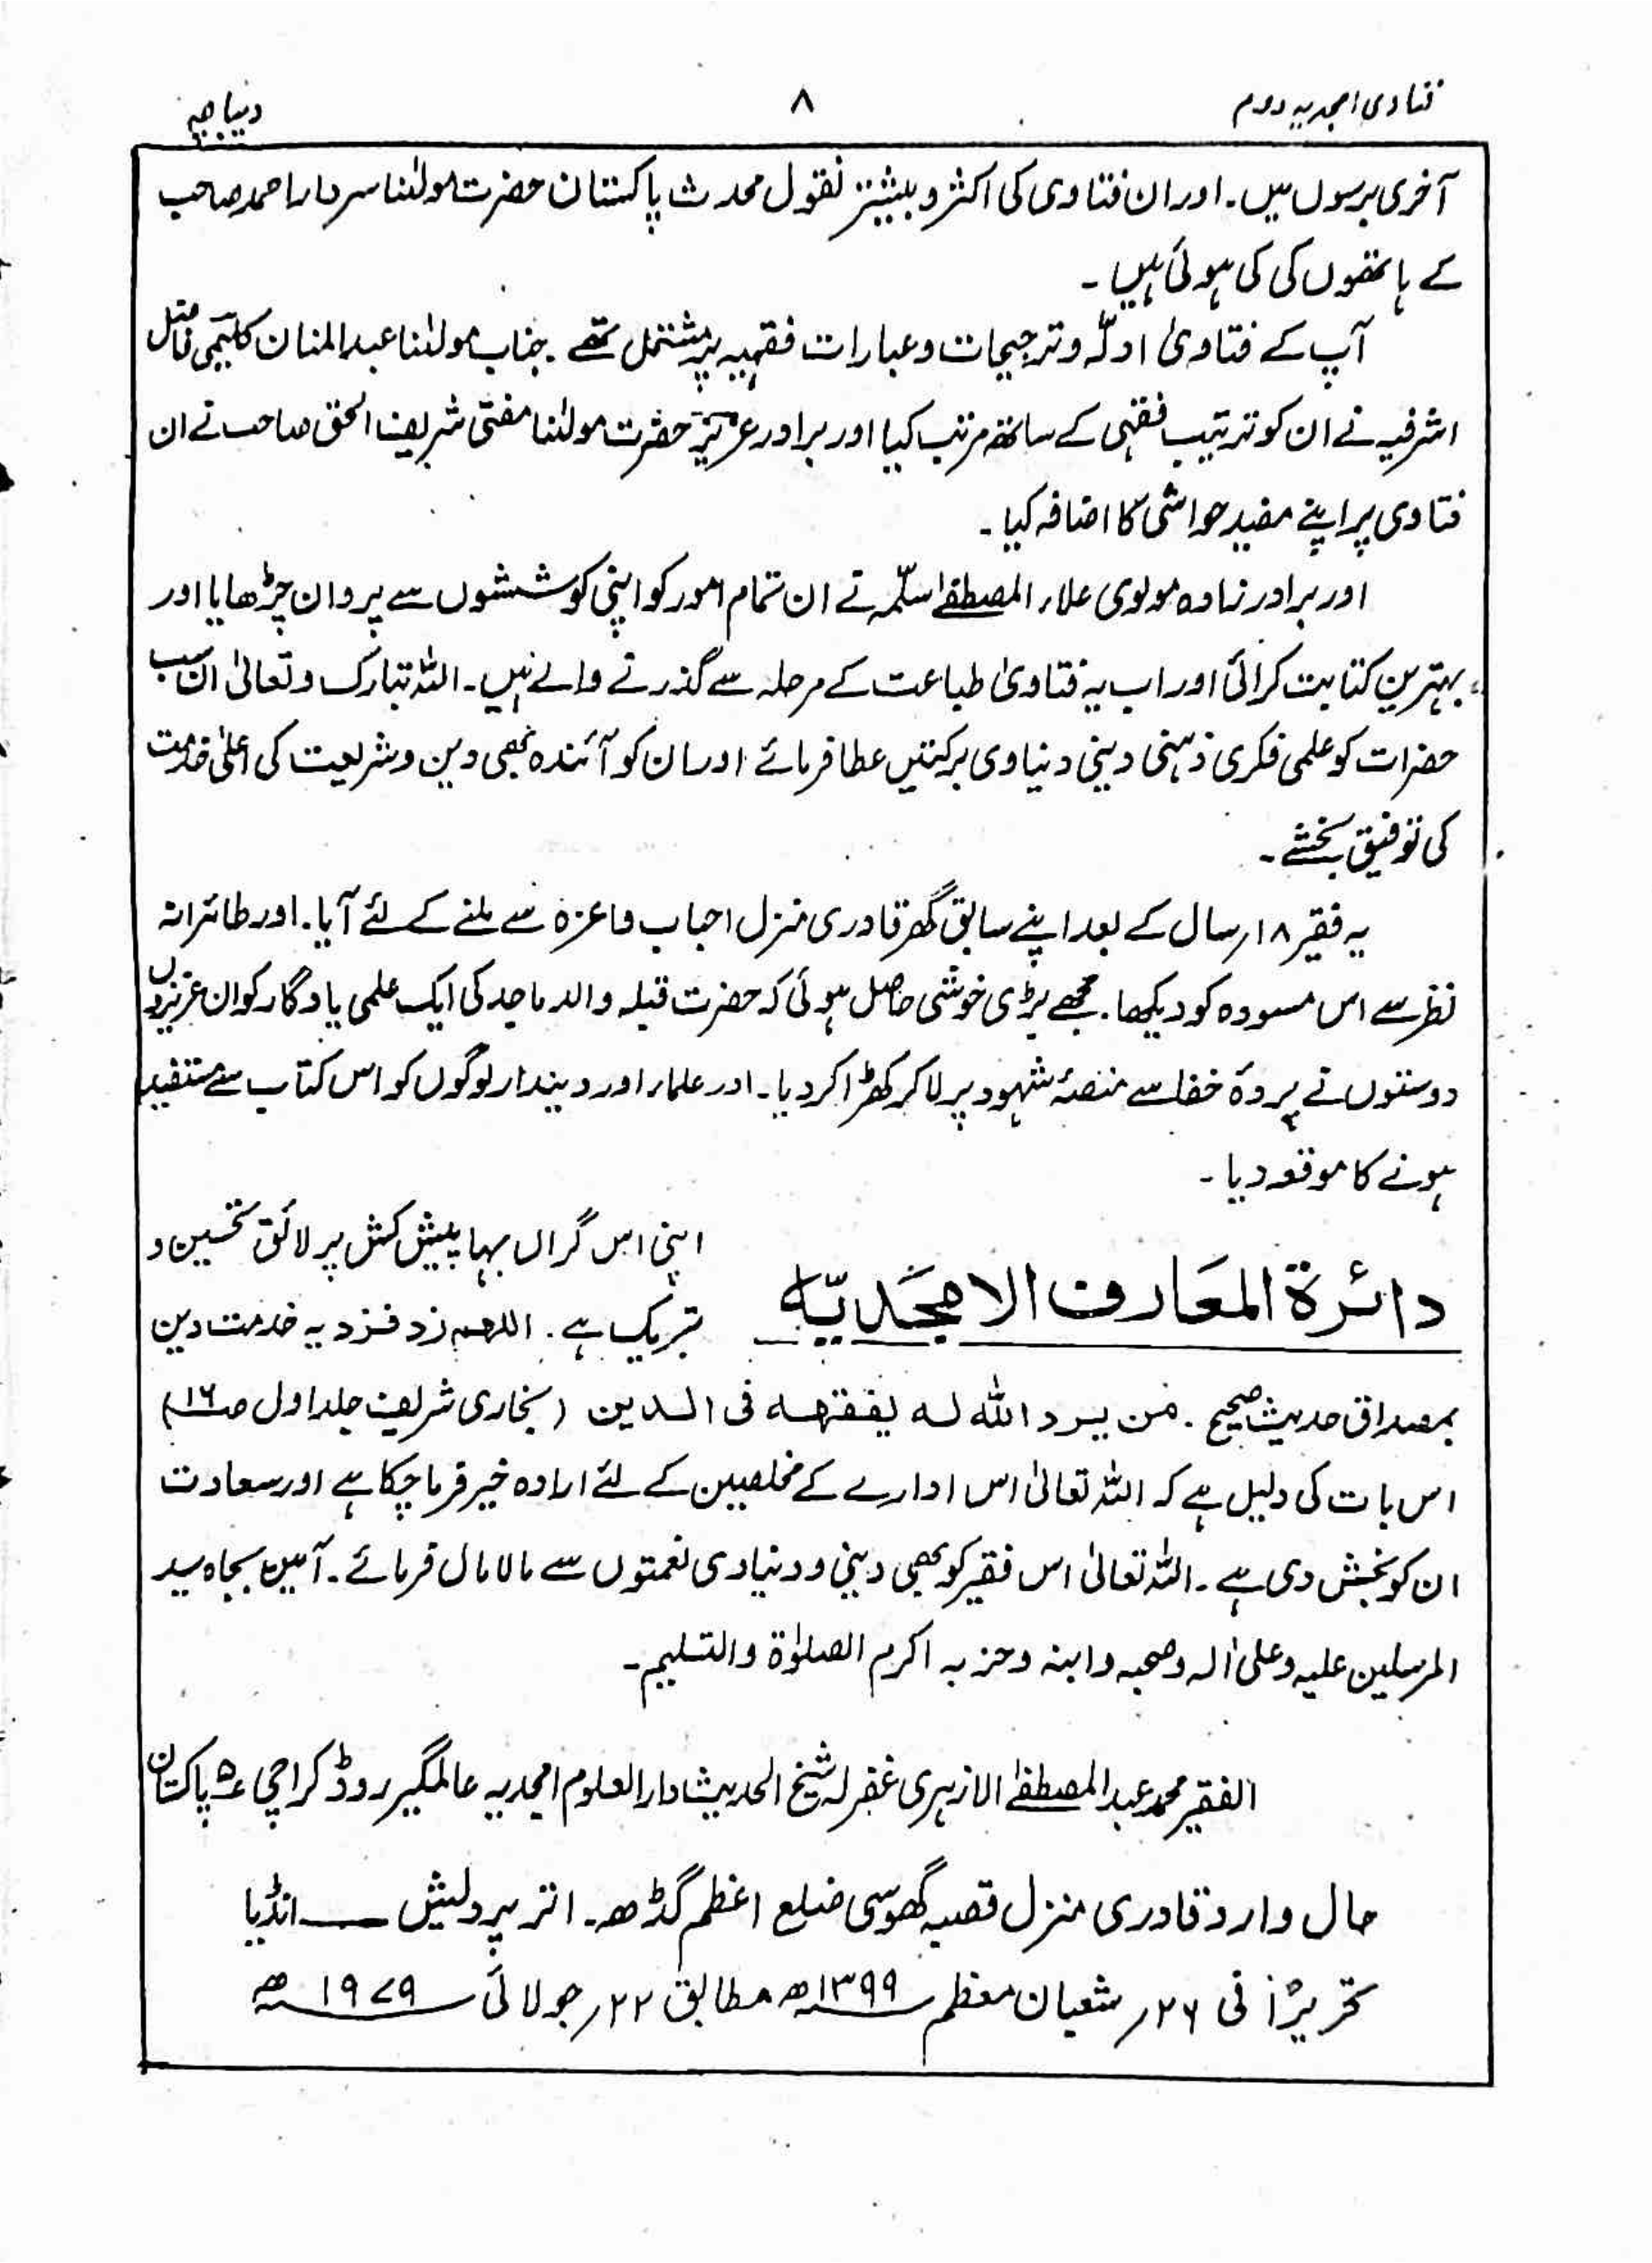 فتاوی امجدیہ دوم ۸ دیباچہ
آخری برسوں میں۔ اور ان فتاوی کی اکثر و بیشتر نقول محدث پاکستان حضرت مولٰنا سردار احمد صاحب
کے ہاتھوں کی کی ہوئی ہیں۔
آپ کے فتاویٰ ادلّہ و ترجیحات و عبارات فقہیہ پر مشتمل تھے۔ جناب مولٰنا عبدالمنان کلیمی فاضل
اشرفیہ نے ان کو ترتیب فقہی کے ساتھ مرتب کیا اور برادر عزیز حضرت مولٰنا مفتی شریف الحق صاحب نے ان
فتاوی پر اپنے مفید حواشی کا اضافہ کیا۔
اور برادر زادہ مولوی علاء المصطفےٰ سلّمہ نے ان تمام امور کو اپنی کوششوں سے پروان چڑھایا اور
بہترین کتابت کرائی اور اب یہ فتاویٰ طباعت کے مرحلہ سے گذرنے والے ہیں۔ اللہ تبارک و تعالیٰ ان سب
حضرات کو علمی فکری ذہنی دینی دنیاوی برکتیں عطا فرمائے اور ان کو آئندہ بھی دین و شریعت کی اعلیٰ خدمت
کی توفیق بخشے۔
یہ فقیر ۱۸؍ سال کے بعد اپنے سابق گھر قادری منزل احباب و اعزہ سے ملنے کے لئے آیا۔ اور طائرانہ
نظر سے اس مسودہ کو دیکھا۔ مجھے بڑی خوشی حاصل ہوئی کہ حضرت قبلہ والد ماجد کی ایک علمی یادگار کو ان عزیزوں
دوستوں نے پردۂ خفا سے منصۂ شہود پر لاکر کھڑا کر دیا۔ اور علماء اور دیندار لوگوں کو اس کتاب سے مستفید
ہونے کا موقعہ دیا۔
دائرۃ المعارف الامجدیّہ اپنی اس گراں بہا پیش کش پر لائق تحسین و
تبریک ہے۔ اللھم زد فزد یہ خدمت دین
بمصداق حدیث صحیح۔ من یرد اللہ لہ یفقھہ فی الدین (بخاری شریف جلد اول صـ۱۶)
اس بات کی دلیل ہے کہ اللہ تعالیٰ اس ادارے کے مخلصین کے لئے ارادہ خیر فرما چکا ہے اور سعادت
ان کو بخش دی ہے۔ اللہ تعالیٰ اس فقیر کو بھی دینی و دنیاوی نعمتوں سے مالامال فرمائے۔ آمین بجاہ سید
المرسلین علیہ وعلیٰ اٰلہ وصحبہ وابنہ وحزبہ اکرم الصلوٰۃ والتسلیم۔
الفقیر محمد عبدالمصطفےٰ الازہری غفرلہ شیخ الحدیث دارالعلوم امجدیہ عالمگیر روڈ کراچی ؏۵ پاکستان
حال وارد قادری منزل قصبہ گھوسی ضلع اعظم گڈھ۔ اتر پردیش ــــ انڈیا
تحریرًا فی ۲۶؍ شعبان معظم ۱۳۹۹ھ مطابق ۲۲؍ جولائی ۱۹۷۹ھ